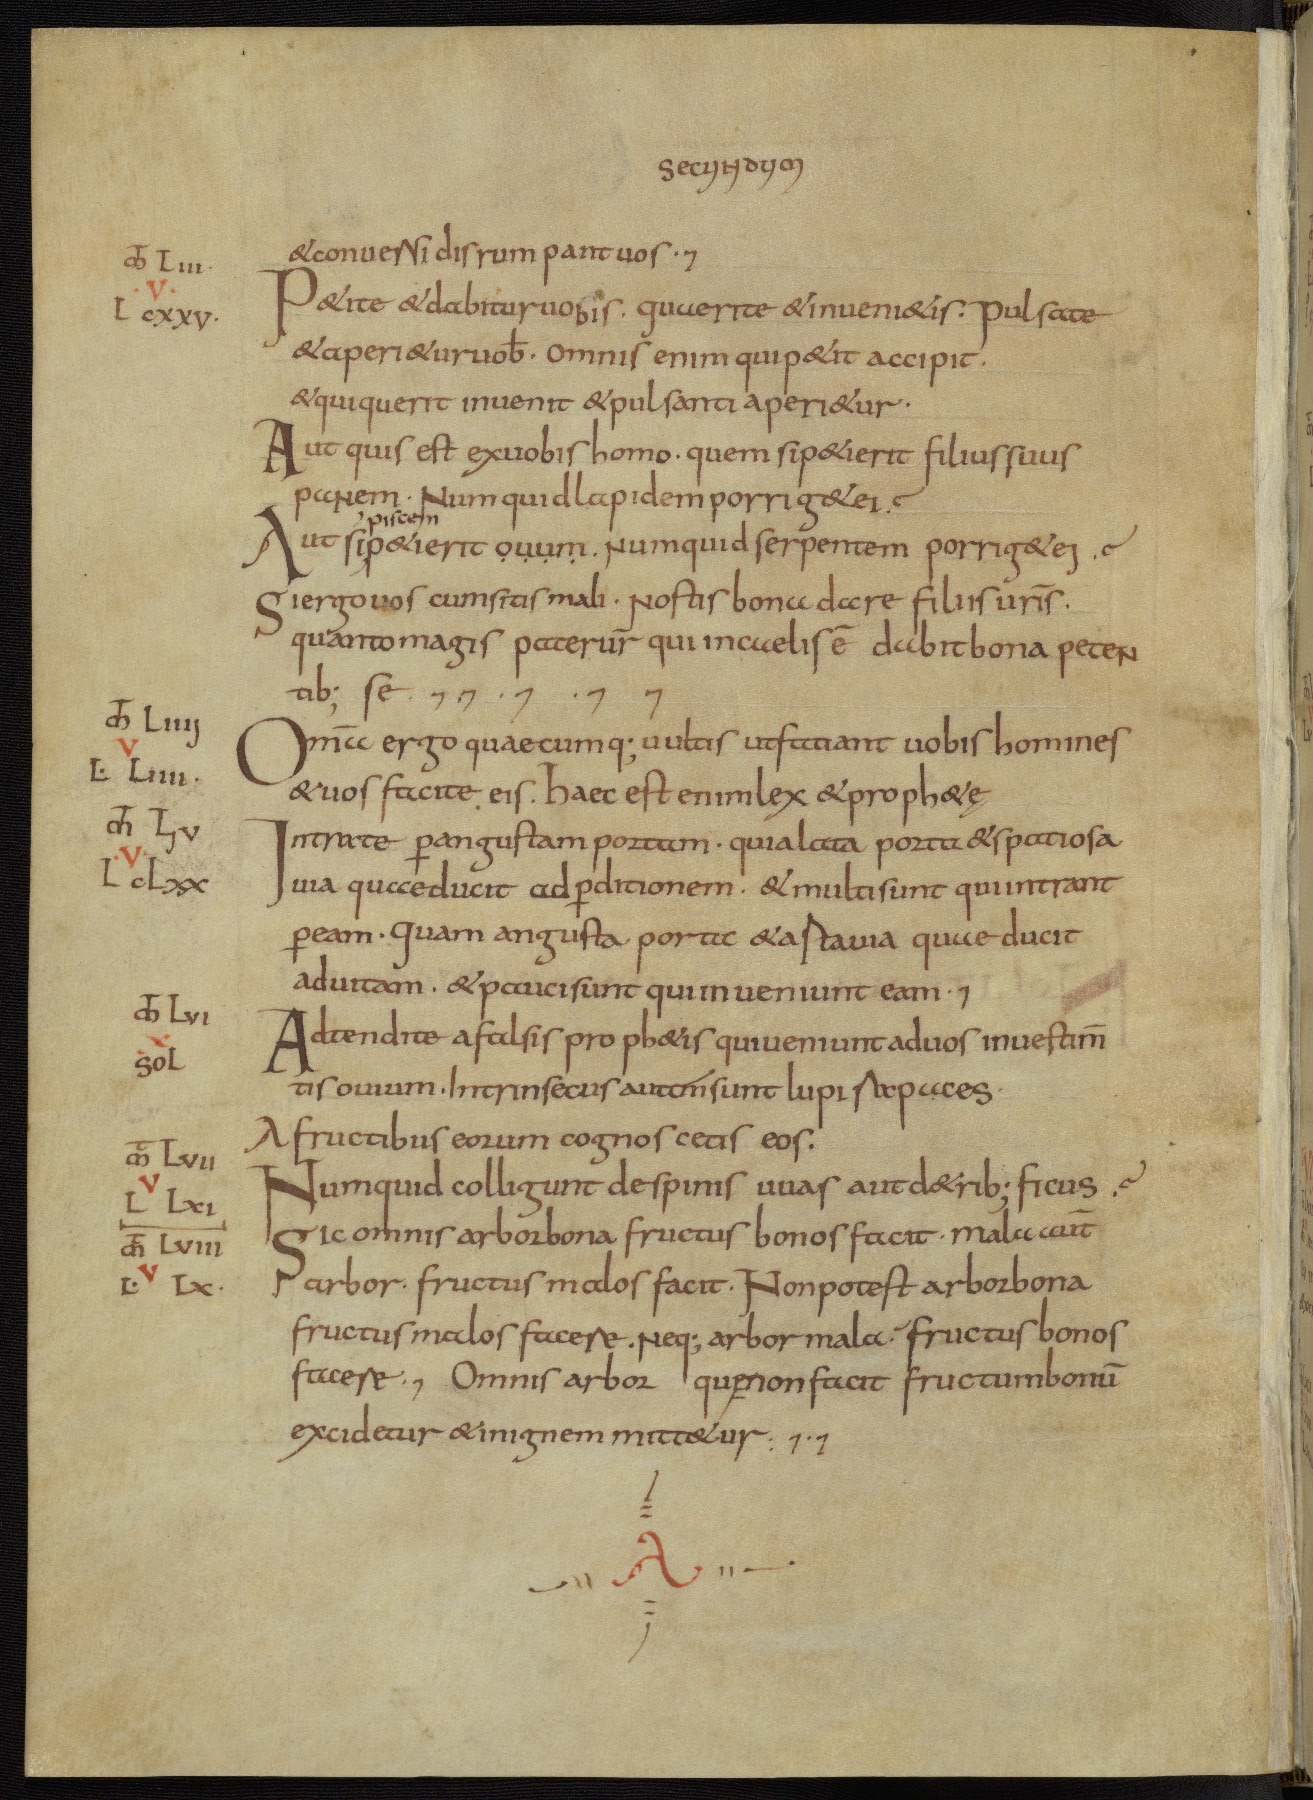 secundum
&conuersi disrumpant uos.
mth Liii.
V
L cxxv.
P&ite &dabitur uobis. quaerite &inueni&is. Pulsate
&aperi&ur uob. omnis enim qui p&it accipit.
&qui querit inuenit &pulsanti aperi&ur.
Aut quis est ex uobis homo. quem si p&ierit filius suus
panem. Numquid lapidem porrig&ei.
piscem
Aut si p&ierit ouum. Numquid serpentem porrig&ei.
Si ergo uos cum sitis mali. Nostis bona dare filiis uris.
quanto magis pater ur qui in caelis ē dabit bona peten
tib; se.
mth Liiij
V
L. Liiii.
Omīa ergo quaecumq; uultis ut faciant uobis homines
&uos facite eis. haec est enim lex &proph&ę
mth Lv
V
L cLxx
Intrate p angustam portam. quia lata porta &spatiosa
uia quae ducit ad pditionem. &multi sunt qui intrant
p eam. Quam angusta porta &arta uia quae ducit
ad uitam. &pauci sunt qui inueniunt eam.
mth Lvi
x
soL
Adtendite a falsis proph&is qui ueniunt ad uos in uestim̄
tis ouium. Intrinsecus autem sunt lupi rapaces.
A fructibus eorum cognoscetis eos.
mth Lvii
V
L Lxi
Numquid colligunt de spinis uuas aut d&rib; ficus
mth Lviii
V
L. Lx.
Sic omnis arbor bona fructus bonos facit. mala aut̄
arbor. fructus malos facit. Non potest arbor bona
fructus malos facere. Neq; arbor mala. fructus bonos
facere. Omnis arbor que non facit fructum bonū
excidetur &in ignem mitt&ur.
A